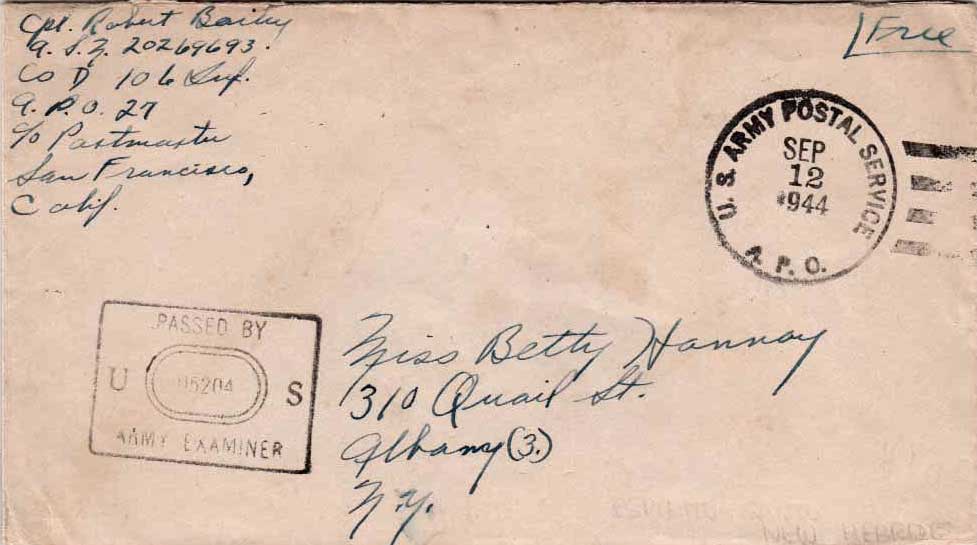 Cpl. Robert Bailey
A.S.N. 20269693.
Co D 106 Inf.
A.P.O. 27
c/o Postmaster
San Francisco,
Calif.
Free
U.S. ARMY POSTAL SERVICE
SEP
12
1944
A.P.O.
PASSED BY
U 05204 S
ARMY EXAMINER
Miss Betty Hannay
310 Quail St.
Albany (3.)
N.Y.
NEW HEBRIDE